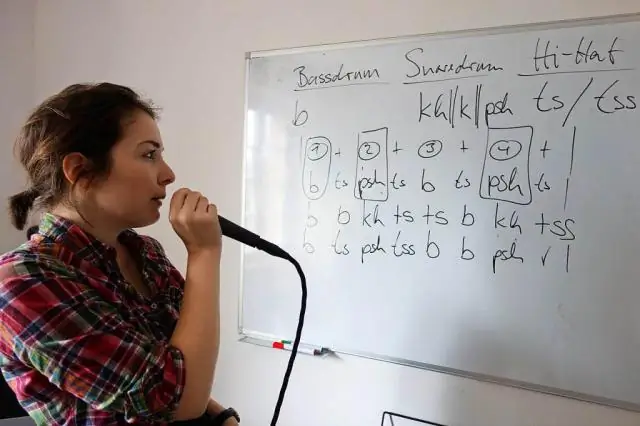 Bassdrum Snaredrum Hi-Hat
b kh||k||psh ts/tss
| 1 + 2 + 3 + 4 + |
b ts psh ts b ts psh ts |
b b kh ts ts b kh tss
b ts psh tss b b psh ✓ |